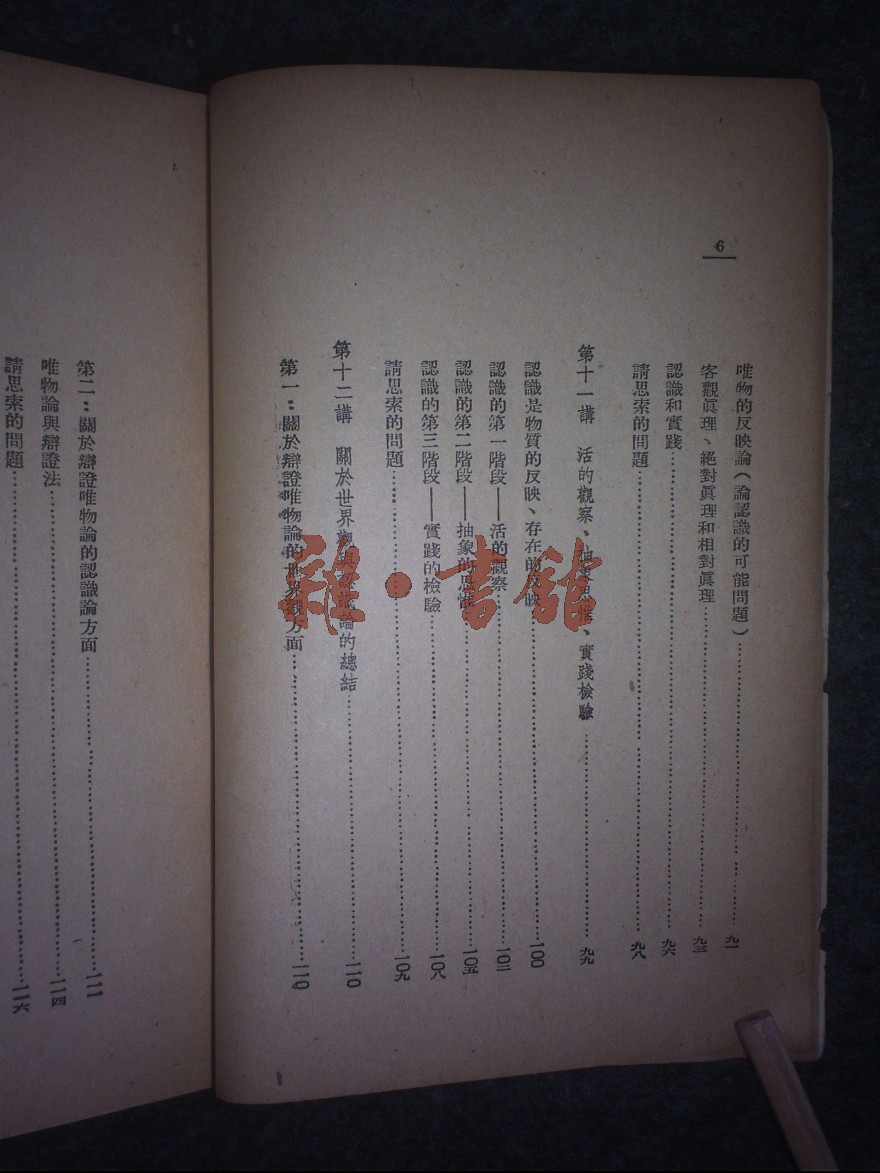 6
唯物的反映論(論認識的可能問題)……九一
客觀眞理、絕對眞理和相對眞理……九三
認識和實踐……九六
請思索的問題……九八
第十一講 活的觀察、抽象思惟、實踐檢驗……九九
認識是物質的反映、存在的反映……一00
認識的第一階段——活的觀察……一0二
認識的第二階段——抽象的思惟……一0五
認識的第三階段——實踐的檢驗……一0八
請思索的問題……一0九
第十二講 關於世界觀與認識論的總結……一一0
第一:關於辯證唯物論的世界觀方面……一一0
第二:關於辯證唯物論的認識論方面……一一一
唯物論與辯證法……一一四
請思索的問題……一一六
雜·書館